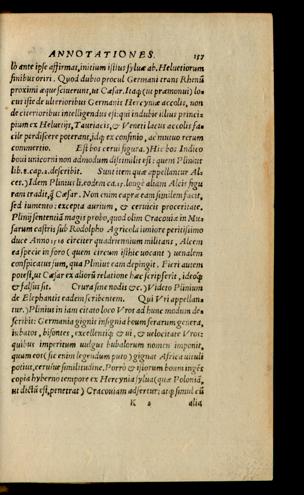 ANNOTATIONES. 157
lo ante ipse affirmat, initium istius syluæ ab. Heluetiorum
finibus oriri. Quod dubio procul Germani trans Rhenũ
proximi æque sciuerunt, ut Cæsar. Itaq; (ut præmonui) lo=
cus iste de ulterioribus Germanis Hercyniæ accolis, non
de citerioribus intelligendus est: qui indubie illius princi=
pium ex Heluetijs, Tauriacis, & Veneti lacus accolis fa=
cile perdiscere poterant, idq; ex confinio, ac mutuo rerum
commertio. Est bos cerui figura.) Hic bos Indico
boui unicorni non admodum dissimilis est: quem Plinius
lib. 8. cap. 2. describit. Sunt item quæ appellantur Al=
ces.) Idem Plinius li. eodem ca. 15. longè aliam Alcis figu
ram tradit, q̃ Cæsar. Non enim capræ eam similem facit,
sed iumento: excepta aurium, & ceruicis proceritate.
Plinij sententiã magis probo, quod olim Cracouiæ in Mu
sarum castris sub Rodolpho Agricola iuniore peritissimo
duce Anno 1518 circiter quadriennium militans, Alcem
ea specie in foro (quem circum istic uocant) uenalem
conspicatus sum, qua Plinius eam depingit. Fieri autem
potest, ut Cæsar ex aliorũ relatione hæc scripserit, ideoq;
& falsus sit. Crura sine nodis &c.) Video Plinium
de Elephantis eadem scribentem. Qui Vri appellan=
tur.) Plinius in iam citato loco Vros ad hunc modum de=
scribit: Germania gignit insignia boum ferarum genera,
iubatos, bisontes, excellentiq; & ui, & uelocitate Vros:
quibus imperitum uulgus bubalorum nomen imponit,
quum eos (sic enim legendum puto) gignat Africa uituli
potius, ceruiue similitudine. Porrò & istorum boum ingẽs
copia hyberno tempore ex Hercynia sylua (quæ Poloniã,
ut dictũ est, penetrat) Cracouiam adfertur: atq; simul cũ
K 2 alia